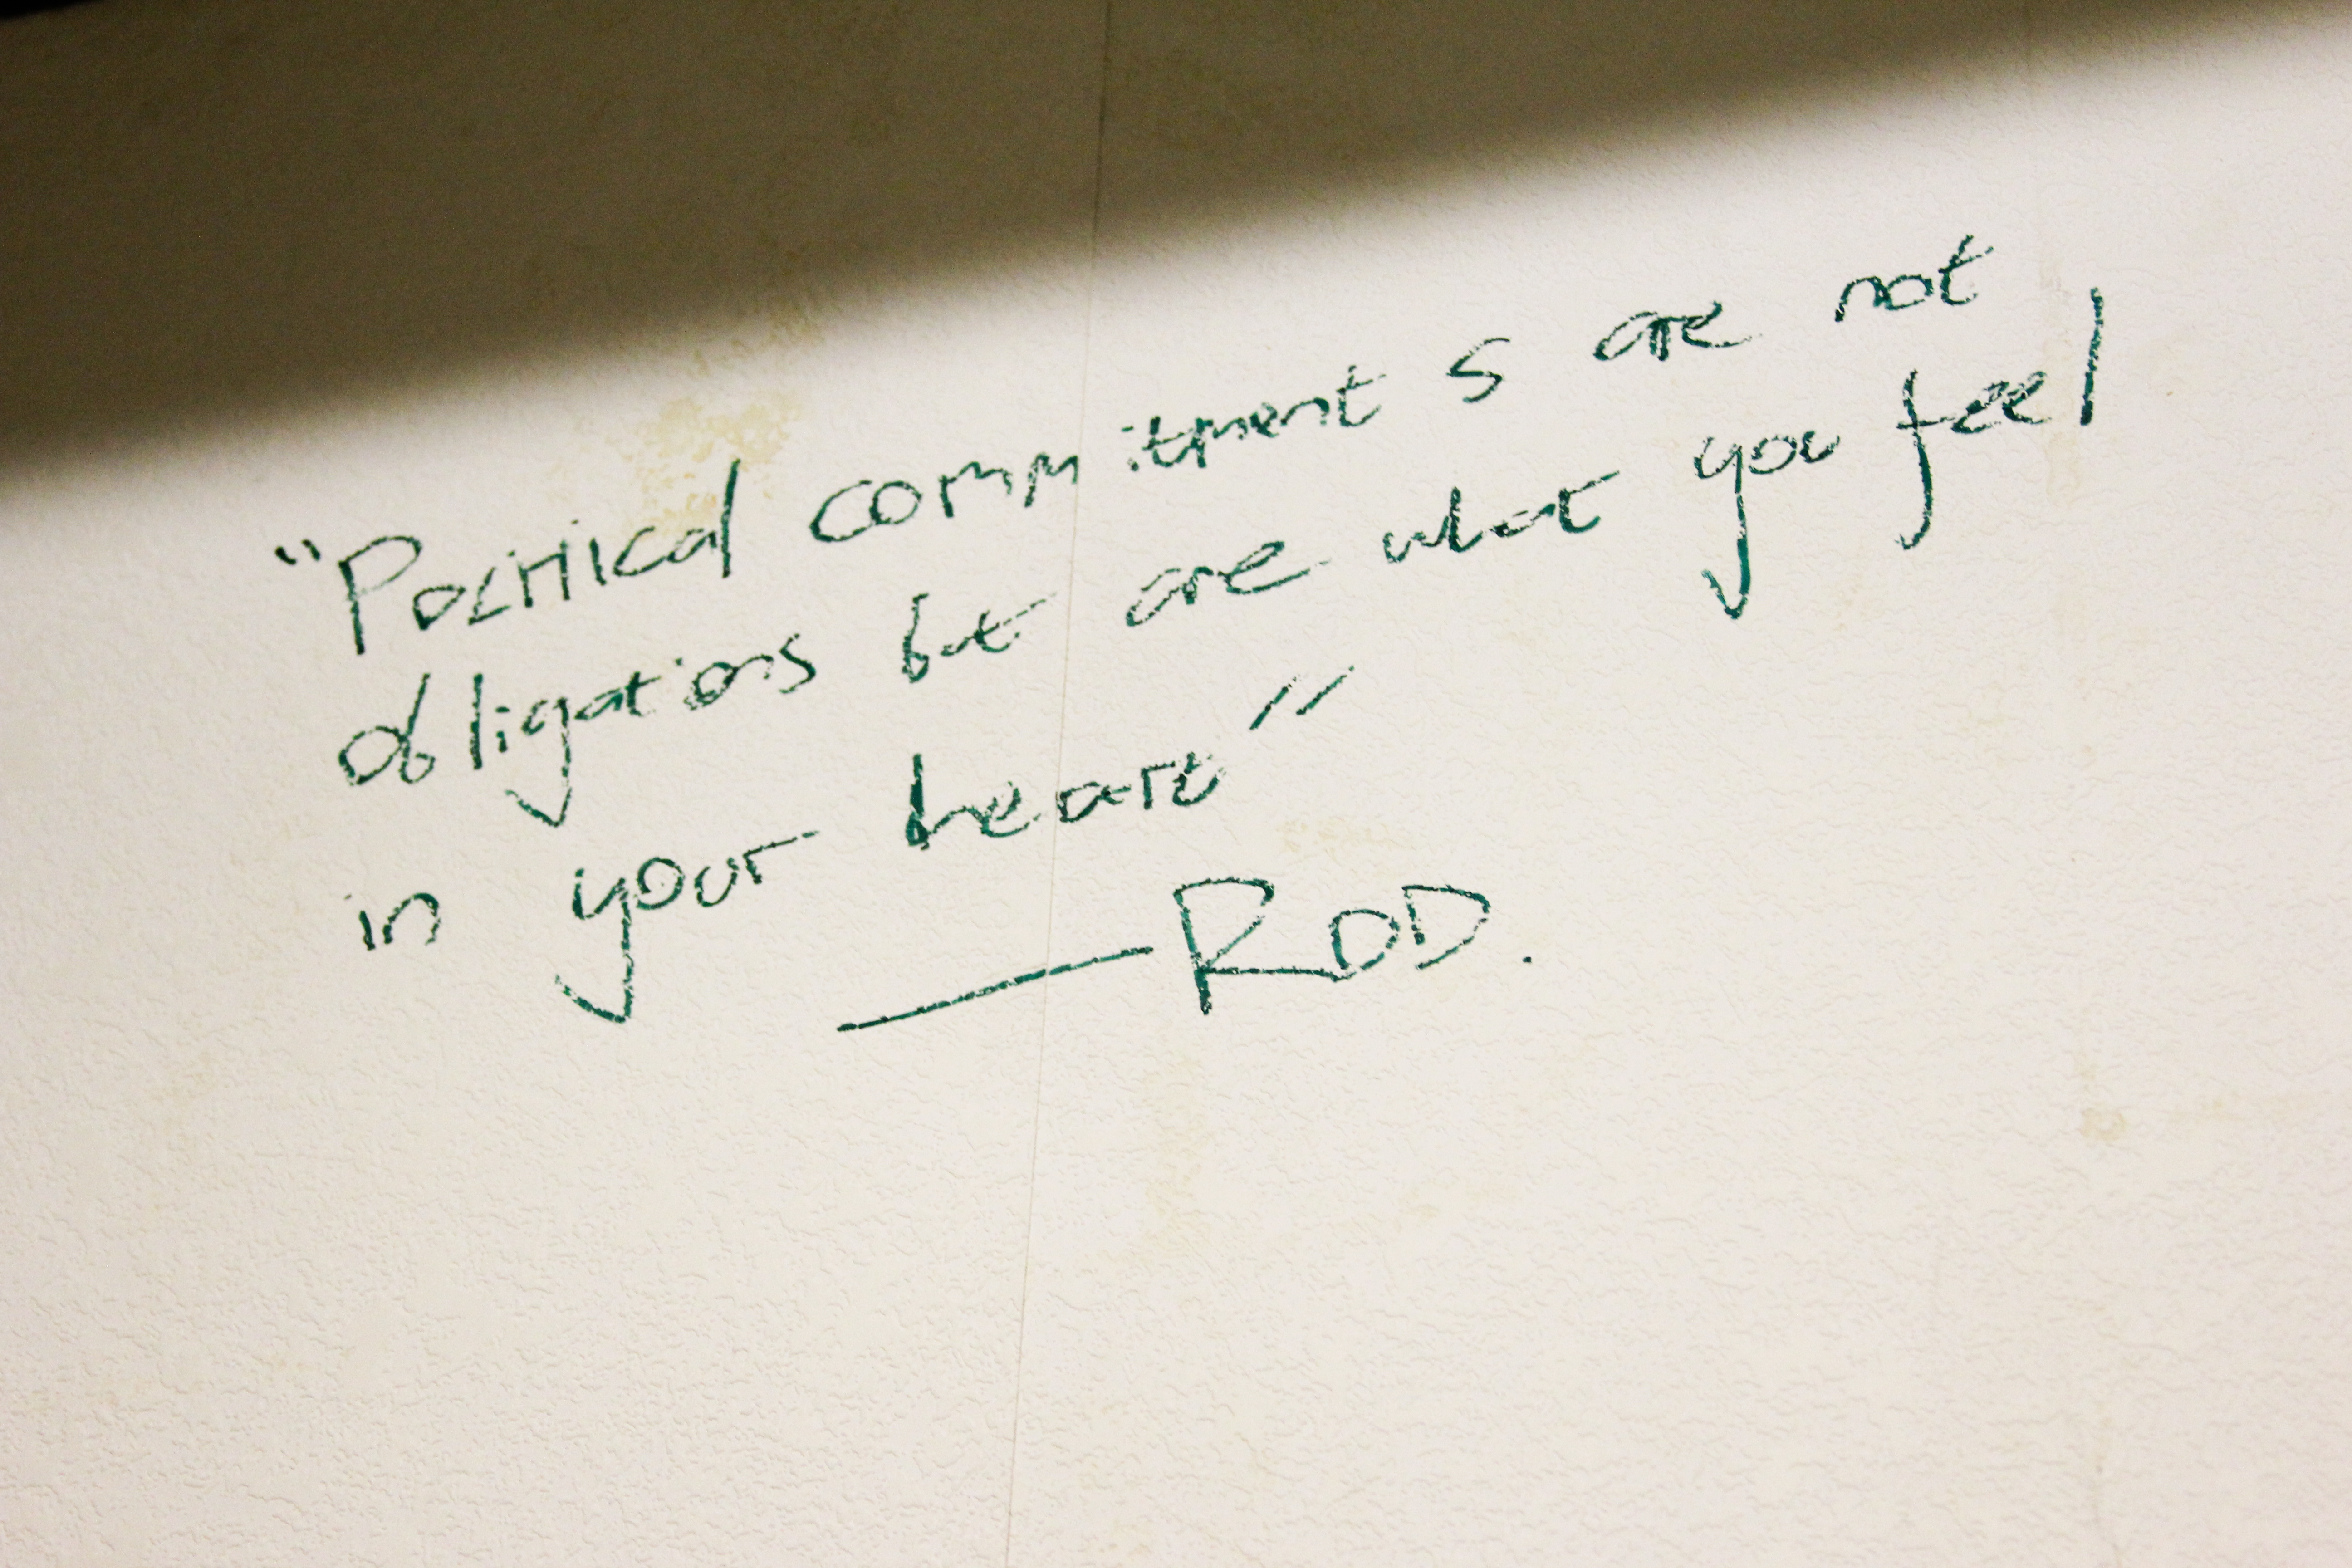 "Political commitments are not
obligations but are what you feel
in your heart"
—ROD.